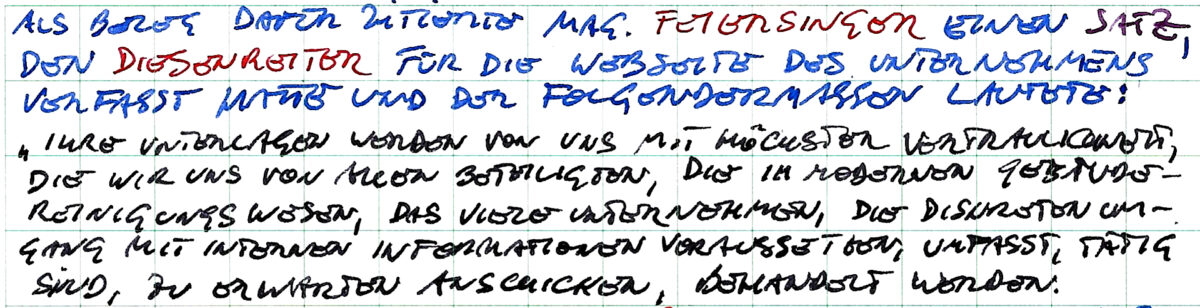 ALS BELEG DAFÜR ZITIERTE MAG. FEIERSINGER EINEN SATZ,
DEN DIESENREITER FÜR DIE WEBSEITE DES UNTERNEHMENS
VERFASST HATTE UND DER FOLGENDERMASSEN LAUTETE:
„IHRE UNTERLAGEN WERDEN VON UNS MIT HÖCHSTER VERTRAULICHKEIT,
DIE WIR UNS VON ALLEN BETEILIGTEN, DIE IM MODERNEN GEBÄUDE-
REINIGUNGSWESEN, DAS VIELE UNTERNEHMEN, DIE DISKRETEN UM-
GANG MIT INTERNEN INFORMATIONEN VORAUSSETZEN, UMFASST, TÄTIG
SIND, ZU ERWARTEN ANSCHICKEN, BEHANDELT WERDEN.